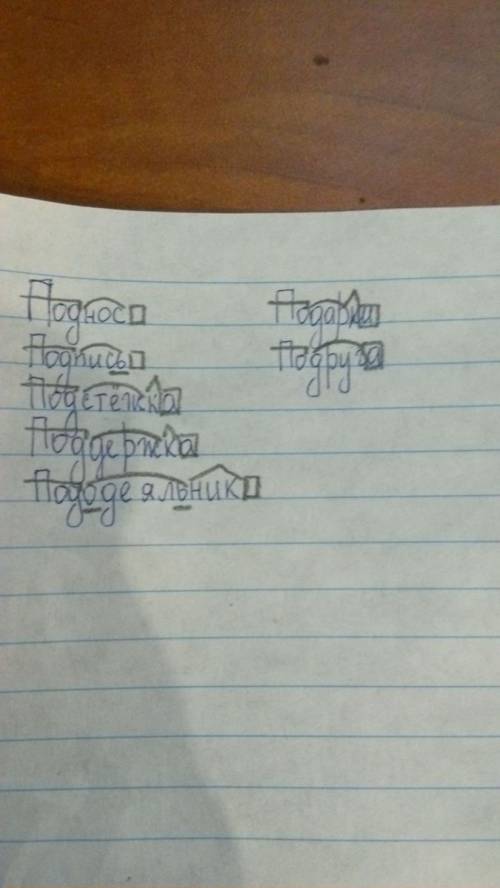 Поднос
Подпись
Подстёжка
Поддержка
Пододеяльник
Подарки
Подруга